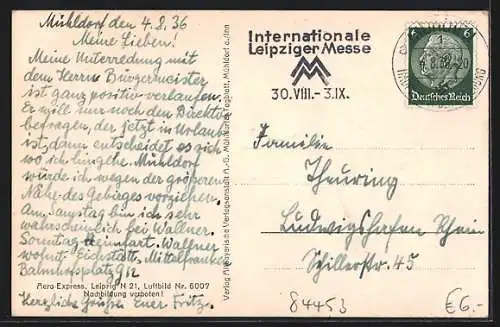 Mühldorf den 4.8.36
Meine Lieben!
Meine Unterredung mit
dem Herrn Bürgermeister
ist ganz positiv verlaufen.
Er will nur noch den Direktor
befragen, der jetzt in Urlaub
ist, dann entscheidet es sich
wo ich hingehe. Mühldorf
würde ich wegen der größeren
Nähe des Gebirges vorziehen.
Am Samstag bin ich sehr
wahrscheinlich bei Wallner.
Sonntag Heimfart. Wallner
wohnt Eichstätt, Mittelfranken
Bahnhofsplatz 9½
Aero-Express, Leipzig N 21, Luftbild Nr. 6007
Nachbildung verboten!
Herzliche Grüße Euer Fritz.
Verlag Altbayerische Verlagsanstalt A.-G. Mühldorfer Tagblatt, Mühldorf a./Inn
Internationale
Leipziger Messe
30.VIII.-3.IX.
6 6
Deutsches Reich
Familie
Theuring
Ludwigshafen Rhein
Schillerstr. 45
84453
€6.-